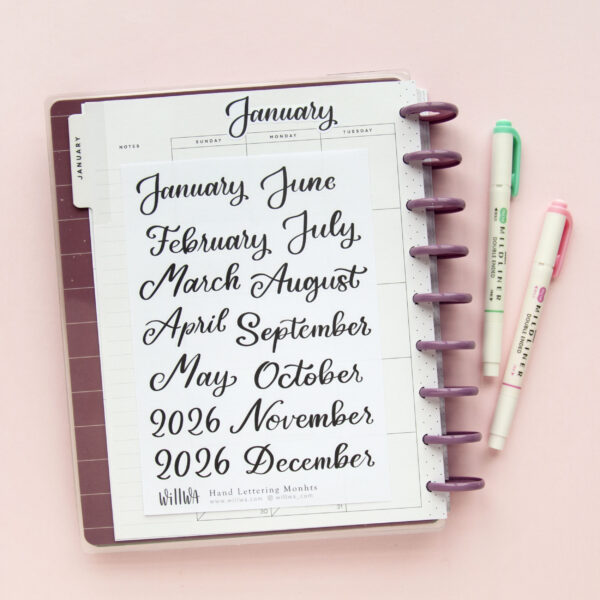 January
JANUARY
NOTES
SUNDAY MONDAY TUESDAY
January June
February July
March August
April September
May October
2026 November
2026 December
WiLLWA Hand Lettering Monhts
www.willwa.com @willwa_com
30 31
MILDLINER
DOUBLE ENDED
MILDLINER
DOUBLE ENDED